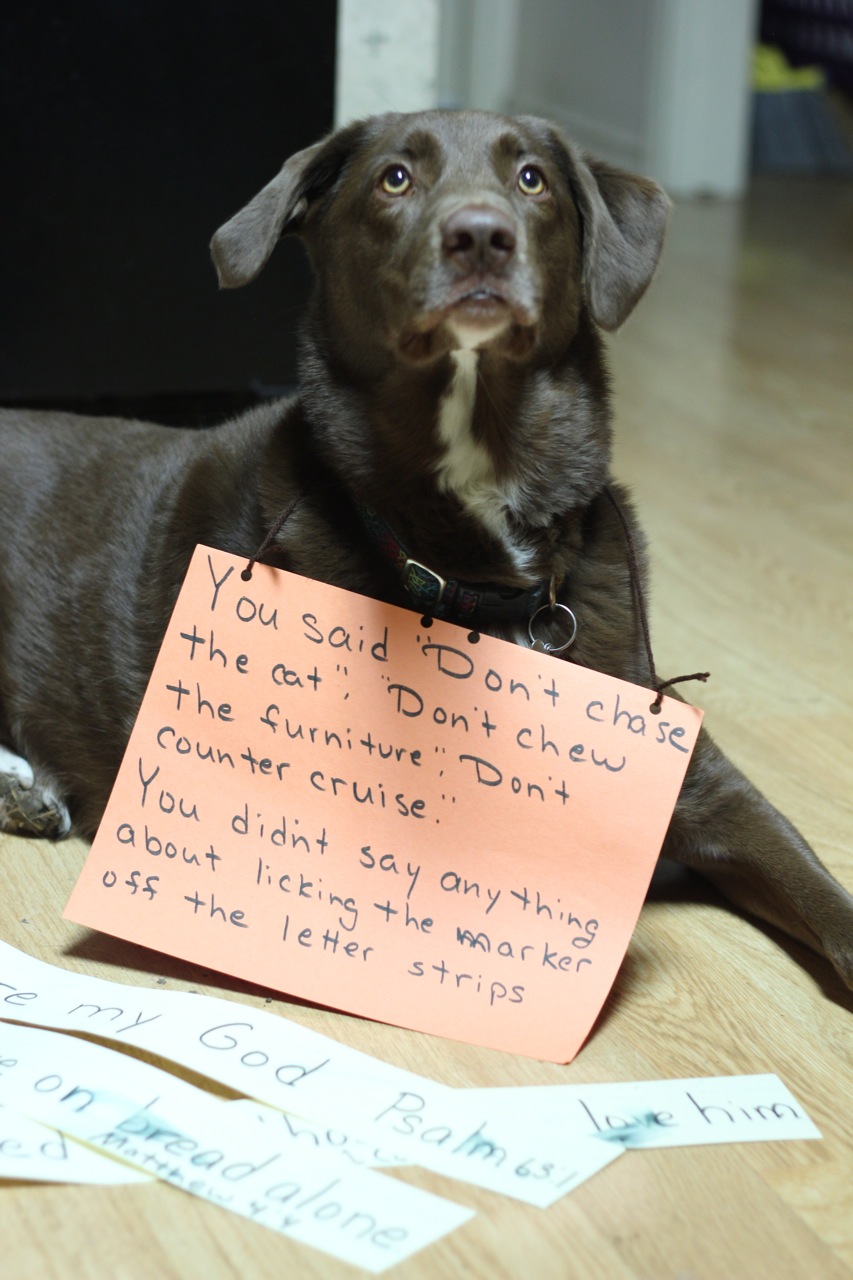 You said "Don't chase
the cat", "Don't chew
the furniture", Don't
counter cruise."
You didn't say anything
about licking the marker
off the letter strips
re my God Psalm 63:1
love him
e on bread alone
Matthew 4:4
ed